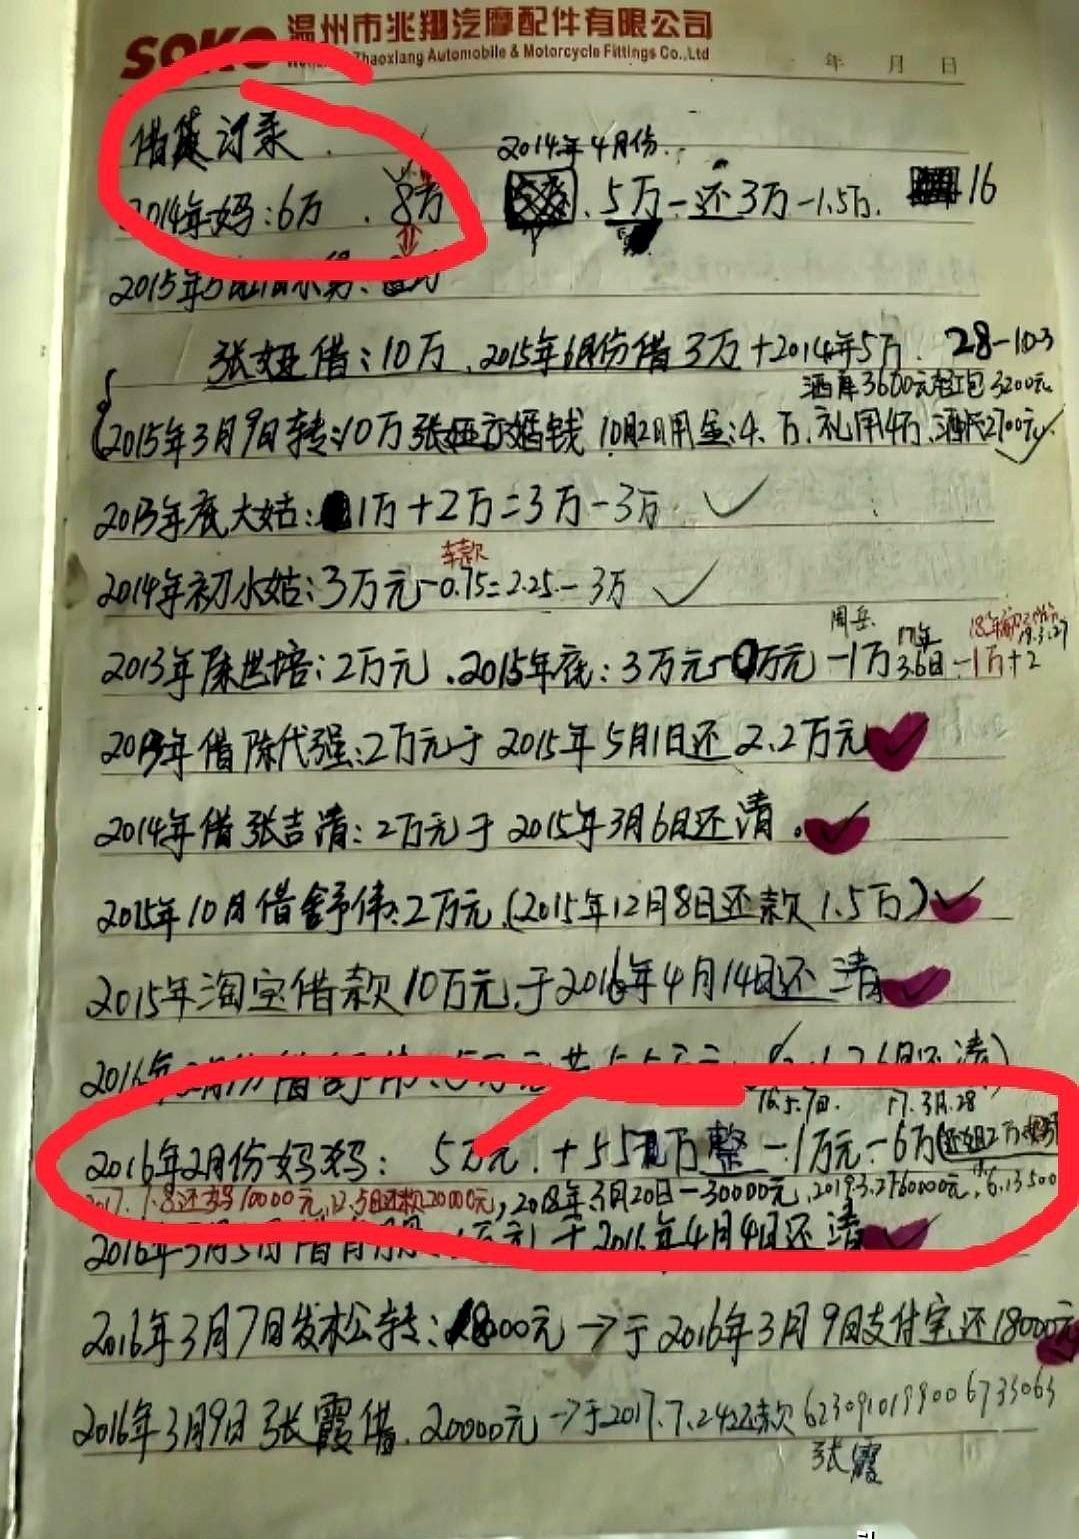 SOKO 温州市兆翔汽摩配件有限公司
Zhaoxiang Automobile & Motorcycle Fittings Co.,Ltd
年 月 日
借贷记录
2014年4月份
2014年妈:6万 . 8万 . 5万-还3万-1.5万. 16
2015年
张娅借:10万.2015年6月份借3万+2014年5万. 28-10-3
3600元红包3200元
2015年3月9日转:10万张娅 婚钱 10月2日用金:4.万.礼用4万.酒 2700元
2013年底大姑:1万+2万=3万-3万
车款
2014年初小姑:3万元-0.75=2.25-3万
周岳 17年
2013年陈世培:2万元.2015年底:3万元-0万元-1万 3.6日-1万+2
2013年借陈代强:2万元于2015年5月1日还2.2万元
2014年借张吉清:2万元于2015年3月6日还清.
2015年10月借舒伟:2万元.(2015年12月8日还款1.5万)
2015年淘宝借款10万元.于2016年4月14日还清
2016年 月份借
16.5.7日. 17.3月.28
2016年2月份妈妈: 5万元.+5.5万整-1万元-6万(还姐2万
2017.1.8还妈10000元,12.5日还款20000元,2018年3月20日-30000元.2019.3.27 60000元,6.13 500
2016年3月3日借 于2016年4月4日还清
2016年3月7日发松转:18000元→于2016年3月9日支付宝还18000元
2016年3月9日张霞借.20000元→于2017.7.24还款6230910199006733063
张霞